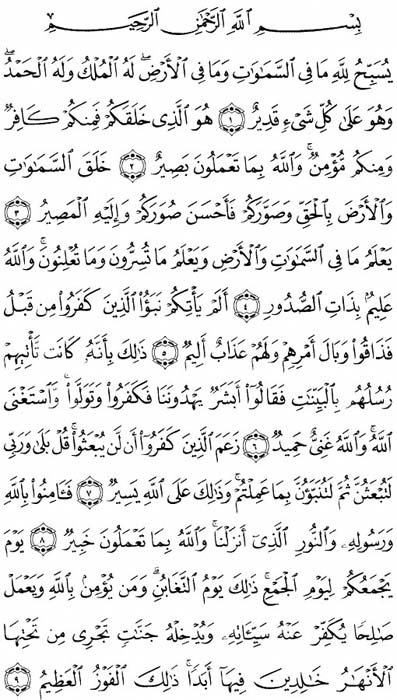 بِسْمِ ٱللَّهِ ٱلرَّحْمَٰنِ ٱلرَّحِيمِ
يُسَبِّحُ لِلَّهِ مَا فِى ٱلسَّمَٰوَٰتِ وَمَا فِى ٱلْأَرْضِۖ لَهُ ٱلْمُلْكُ وَلَهُ ٱلْحَمْدُۖ
وَهُوَ عَلَىٰ كُلِّ شَىْءٍ قَدِيرٌ ١ هُوَ ٱلَّذِى خَلَقَكُمْ فَمِنكُمْ كَافِرٌ
وَمِنكُم مُّؤْمِنٌۚ وَٱللَّهُ بِمَا تَعْمَلُونَ بَصِيرٌ ٢ خَلَقَ ٱلسَّمَٰوَٰتِ
وَٱلْأَرْضَ بِٱلْحَقِّ وَصَوَّرَكُمْ فَأَحْسَنَ صُوَرَكُمْۖ وَإِلَيْهِ ٱلْمَصِيرُ ٣
يَعْلَمُ مَا فِى ٱلسَّمَٰوَٰتِ وَٱلْأَرْضِ وَيَعْلَمُ مَا تُسِرُّونَ وَمَا تُعْلِنُونَۚ وَٱللَّهُ
عَلِيمٌۢ بِذَاتِ ٱلصُّدُورِ ٤ أَلَمْ يَأْتِكُمْ نَبَؤُا۟ ٱلَّذِينَ كَفَرُوا۟ مِن قَبْلُ
فَذَاقُوا۟ وَبَالَ أَمْرِهِمْ وَلَهُمْ عَذَابٌ أَلِيمٌ ٥ ذَٰلِكَ بِأَنَّهُۥ كَانَت تَّأْتِيهِمْ
رُسُلُهُم بِٱلْبَيِّنَٰتِ فَقَالُوٓا۟ أَبَشَرٌ يَهْدُونَنَا فَكَفَرُوا۟ وَتَوَلَّوا۟ۚ وَّٱسْتَغْنَى
ٱللَّهُۚ وَٱللَّهُ غَنِىٌّ حَمِيدٌ ٦ زَعَمَ ٱلَّذِينَ كَفَرُوٓا۟ أَن لَّن يُبْعَثُوا۟ۚ قُلْ بَلَىٰ وَرَبِّى
لَتُبْعَثُنَّ ثُمَّ لَتُنَبَّؤُنَّ بِمَا عَمِلْتُمْۚ وَذَٰلِكَ عَلَى ٱللَّهِ يَسِيرٌ ٧ فَـَٔامِنُوا۟ بِٱللَّهِ
وَرَسُولِهِۦ وَٱلنُّورِ ٱلَّذِىٓ أَنزَلْنَاۚ وَٱللَّهُ بِمَا تَعْمَلُونَ خَبِيرٌ ٨ يَوْمَ
يَجْمَعُكُمْ لِيَوْمِ ٱلْجَمْعِۖ ذَٰلِكَ يَوْمُ ٱلتَّغَابُنِۗ وَمَن يُؤْمِنۢ بِٱللَّهِ وَيَعْمَلْ
صَٰلِحًا يُكَفِّرْ عَنْهُ سَيِّـَٔاتِهِۦ وَيُدْخِلْهُ جَنَّٰتٍ تَجْرِى مِن تَحْتِهَا
ٱلْأَنْهَٰرُ خَٰلِدِينَ فِيهَآ أَبَدًاۚ ذَٰلِكَ ٱلْفَوْزُ ٱلْعَظِيمُ ٩